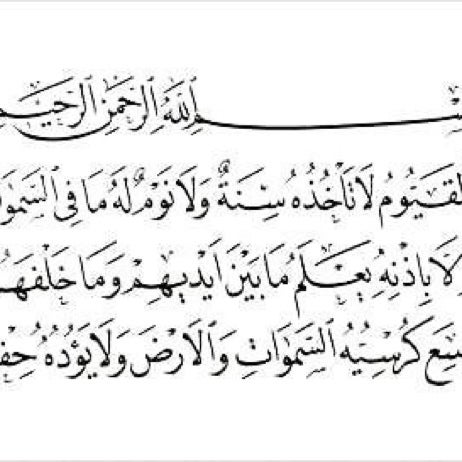 بِسْمِ ٱللَّهِ الرَّحْمٰنِ الرَّحِيمِ
لْقَيُّومُ لَا تَأْخُذُهُ سِنَةٌ وَلَا نَوْمٌ لَهُ مَا فِي السَّمٰوَا
إِلَّا بِإِذْنِهِ يَعْلَمُ مَا بَيْنَ أَيْدِيهِمْ وَمَا خَلْفَهُمْ
وَسِعَ كُرْسِيُّهُ السَّمٰوَاتِ وَالْأَرْضَ وَلَا يَؤُدُهُ حِفْ